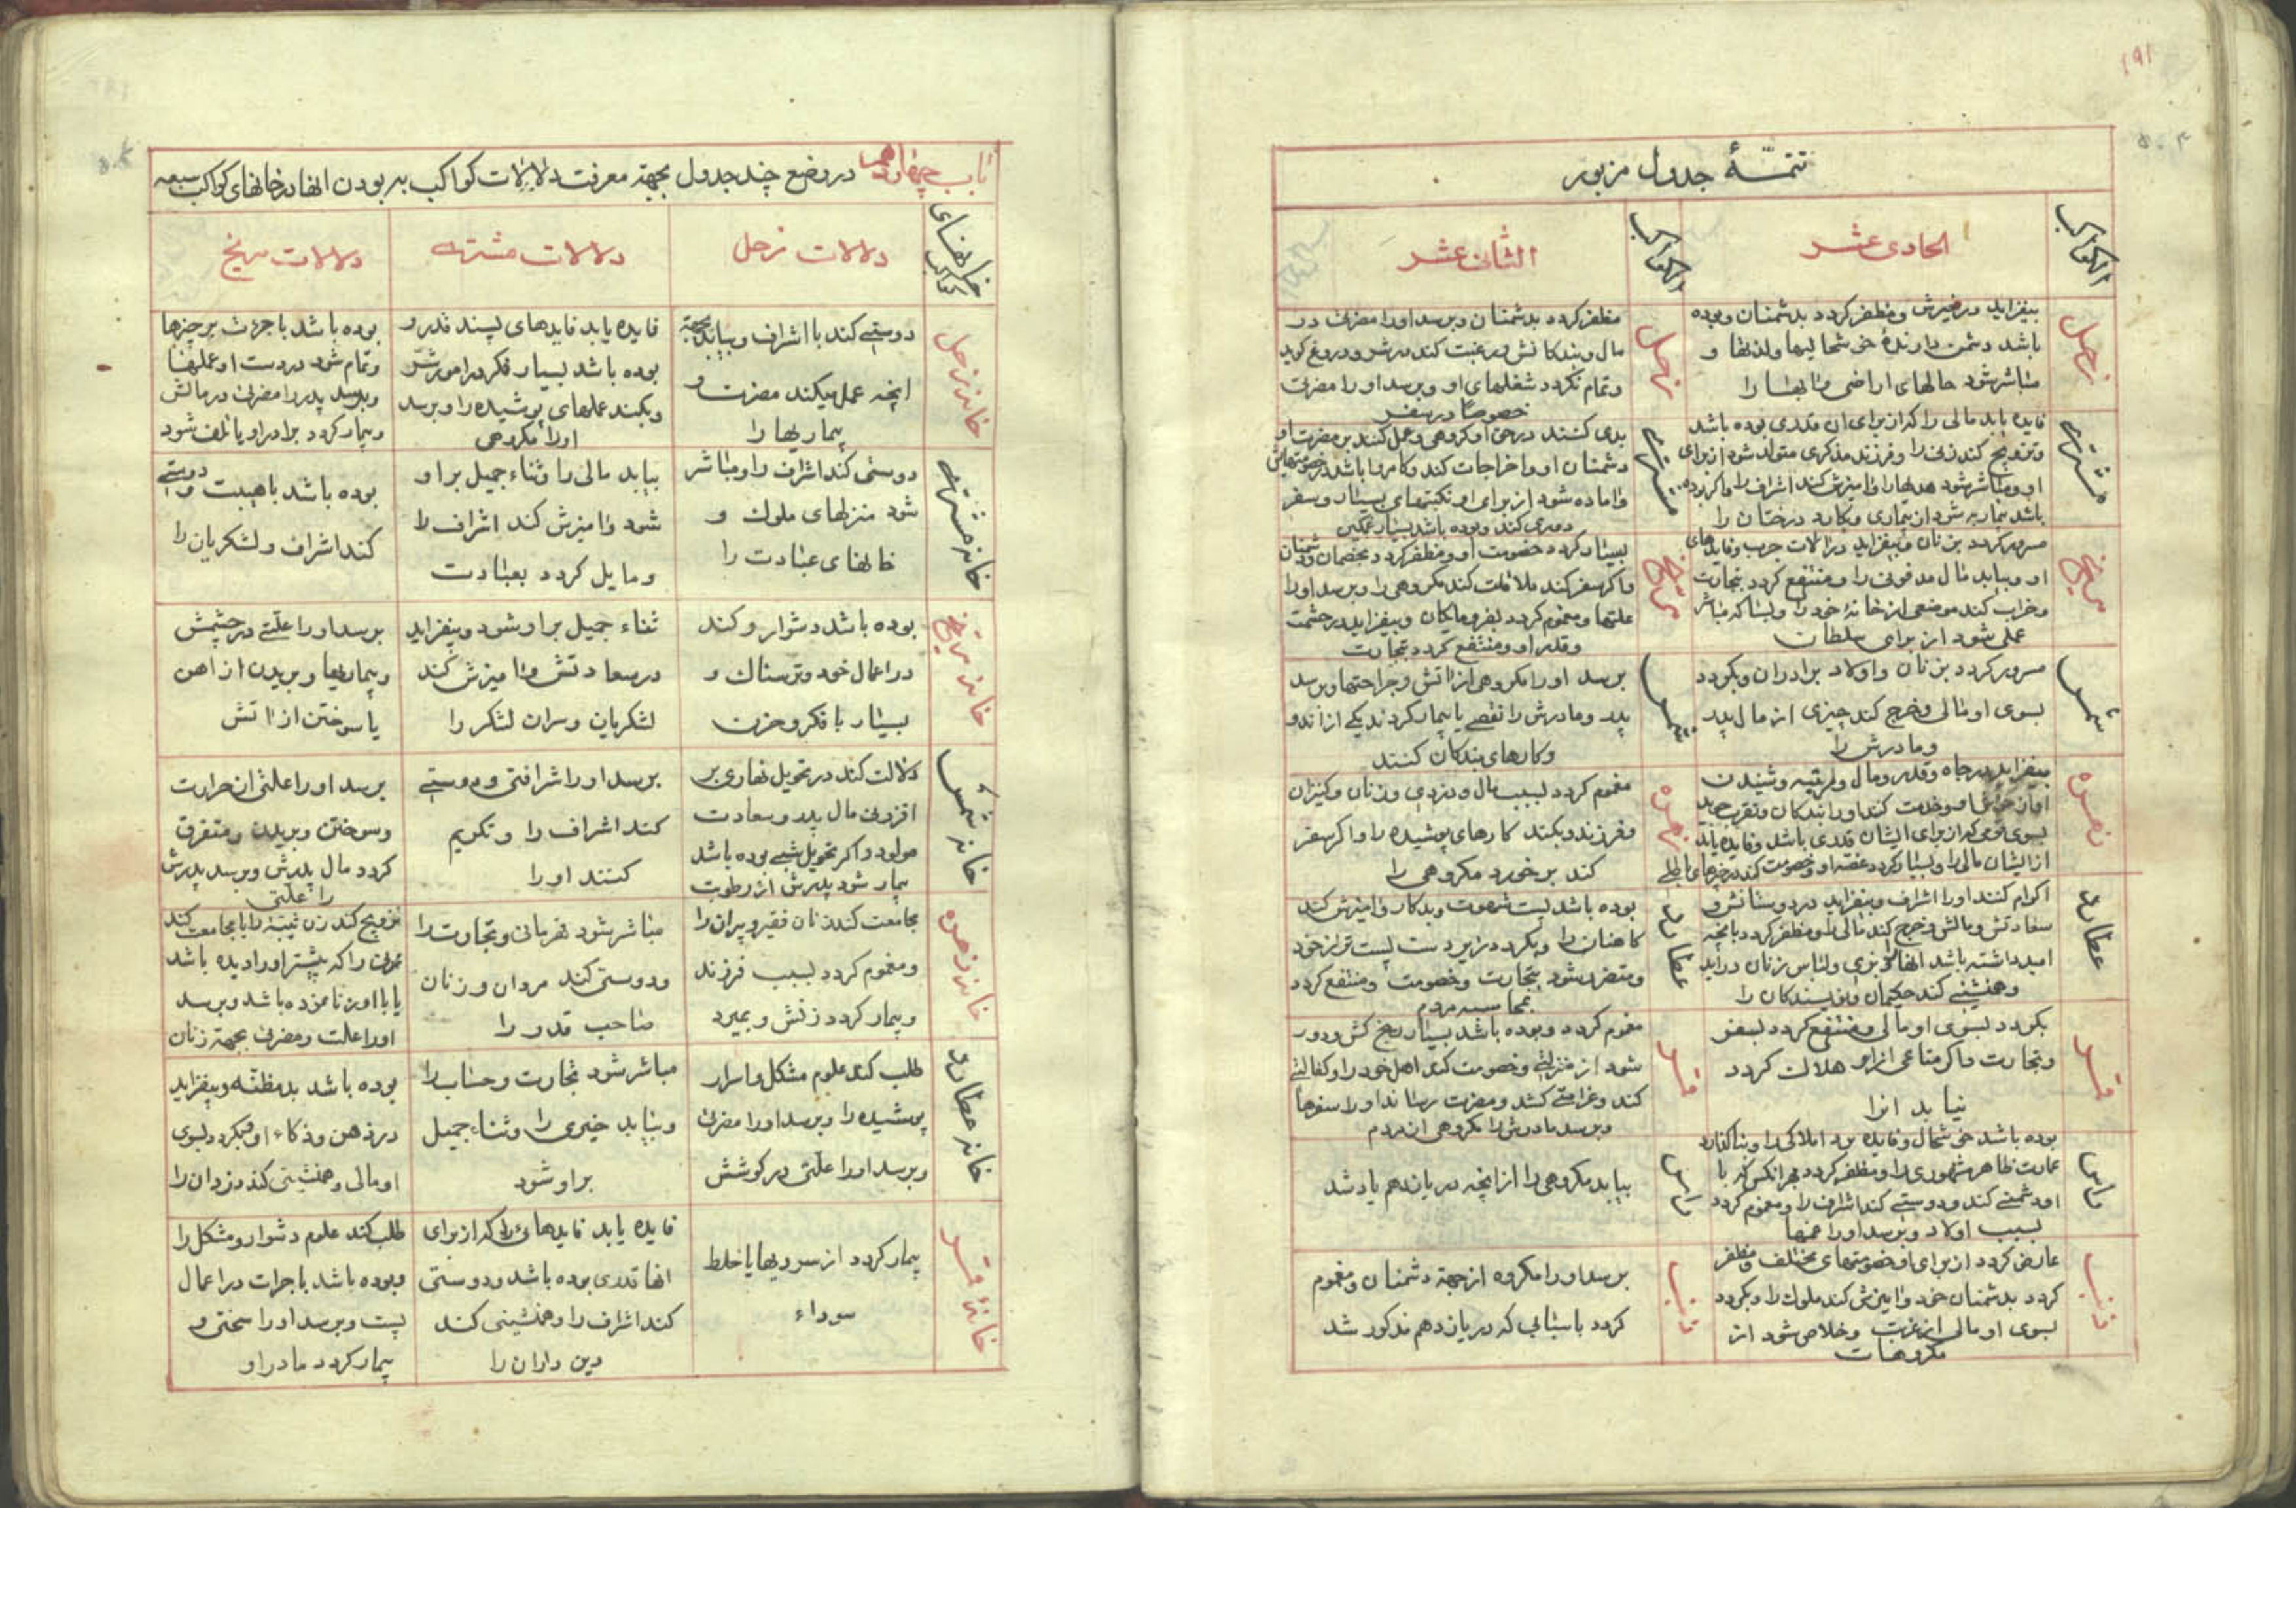 ۱۹۱
تتمّۀ جدول مزبور
الکواکب
الحادی عشر
الکواکب
الثانی عشر
زحل
بیفزاید در خیرش و مظفر کردد بدشمنان و بوده
باشد دشمن دارندۀ خوشحالیها و لذتها و
مباشر شود حالهای اراضی و
زحل
مظفر کردد بدشمنان و برسد او را مضرتی در
مال و بندکانش و رغبت کند در شر و دروغ کوید
و تمام نکردد شغلهای او و برسد او را مضرتی
خصوصاً در سفر
مشتری
فایده یابد مالی را که از برای ان قدری بوده باشد
و تزویج کند زنی را و فرزند مذکری متولد شود از برای
او و مباشر شود و امیزش کند اشراف را و اکر بوده
باشد بیمار به شود از بیماری و بکارد درختان را
مشتری
بدی کنند در حق او کروهی و عمل کنند بر مضرت او
دشمنان او و اخراجات کند و کامروا باشد در
و اماده شود از برای او نکبتهای بسیار و سفر
دوری کند و بوده باشد بسیار غمکین
مریخ
مسرور کردد بزنان و بیفزاید در الات حرب و فایدهای
او و بیابد مال مدفونی را و منتفع کردد بتجارت
و خراب کند موضعی از خانۀ خود را و بسا که مباشر
عملی شود از برای سلطان
مریخ
بسیار کردد خصومت او و مظفر کردد بخصمان و دشمنان
و اکر سفر کند ملاقات کند مکروهی را و برسد او را
علتها و مغموم کردد بفرومایکان و بیفزاید در حشمت
و قدر او و منتفع کردد بتجارت
شمس
مسرور کردد بزنان و اولاد برادران و بکردد
بسوی او مالی و خرج کند چیزی از مال پدر
و مادرش را
شمس
برسد او را مکروهی از اتش و جراحتها و برسد
پدر و مادرش را نقصی یا بیمار کردند یکی از اندو
و کارهای بندکان کنند
زهره
بیفزاید در جاه و قدر و مال و مرتبه و شنیدن
و خدمت کند او را بندکان و تقرب جوید
بسوی قومی که از برای ایشان قدری باشد و فایده یابد
از ایشان مالی را و بسیار کردد غصه او و خصومت کند در چیزهای باطل
زهره
مغموم کردد بسبب مال و دزدی و زنان و کنیزان
و فرزند و بکند کارهای پوشیده را و اکر سفر
کند برخورد مکروهی را
عطارد
اکرام کنند او را اشراف و بیفزاید در دوستانش و
سعادتش و مالش و خرج کند مالی را و مظفر کردد بانچه
امید داشته باشد و لباس زنان دراید
و همنشینی کند حکیمان و نویسندکان را
عطارد
بوده باشد پست شهوت و بدکار و امیزش کند
کاهنان را و بکردد زیر دست پست تر از خود
و متضرر شود بتجارت و خصومت و منتفع کردد
بمحاسبه مردم
قمر
بکردد بسوی او مالی و منتفع کردد بسفر
و تجارت و اکر متاعی از او هلاک کردد
نیابد انرا
قمر
مغموم کردد و بوده باشد بسیار رنج کش و دور
شود از منزلش و خصومت کند اهل خود را و کفالتی
کند و غرامتی کشد و مضرت رساند او را سفرها
و برسد مادرش را مکروهی از مردم
راس
بوده باشد خوشحال و فایده برد املاکی را و بنا کذارد
عمارت ظاهر مشهوری را و مظفر کردد بهر انکس که با
او دشمنی کند و دوستی کند اشراف را و مغموم کردد
بسبب اولاد و برسد او را غمها
راس
بیابد مکروهی را از انچه در یازدهم یاد شد
ذنب
عارض کردد از برای او خصومتهای مختلف و مظفر
کردد بدشمنان خود و امیزش کند ملوک را و بکردد
بسوی او مالی از غربت و خلاص شود از
مکروهات
ذنب
برسد او را مکروه از جهة دشمنان و مغموم
کردد باسبابی که در یازدهم مذکور شد
باب چهاردهم در وضع چند جدول بجهة معرفت دلالات کواکب بر بودن انها در خانهای کواکب سبعه
خانهای کواکب
دلالات زحل
دلالات مشتری
دلالات مریخ
خانۀ زحل
دوستی کند با اشراف و بیابد بجهة
انچه عمل میکند مضرت و
بیماریها را
فایده یابد فایدهای پسند قدر و
بوده باشد بسیار فکر در امور شر
و بکند عملهای پوشیده را و برسد
او را مکروهی
بوده باشد با جرئت بر چیزها
و تمام شود در دست او عملها
و برسد پدر را مضرتی در مالش
و بیمار کردد برادر او یا تلف شود
خانۀ مشتری
دوستی کند اشراف را و مباشر
شود منزلهای ملوک و
خانهای عبادت را
بیابد مالی را و ثناء جمیل بر او
شود و امیزش کند اشراف را
و مایل کردد بعبادت
بوده باشد با هیبت و دوستی
کند اشراف و لشکریان را
خانۀ مریخ
بوده باشد دشوار و کند
در اعمال خود و ترسناک و
بسیار با فکر و حزن
ثناء جمیل بر او شود و بیفزاید
در سعادتش و امیزش کند
لشکریان و سران لشکر را
برسد او را علتی در چشمش
و بیماریها و بریدن از اهن
یا سوختن از اتش
خانۀ شمس
دلالت کند در تحویل نهاری بر
افزونی مال پدر و سعادت
مولود و اکر تحویل شبی بوده باشد
بیمار شود پدرش از رطوبت
برسد او را شرافتی و دوستی
کند اشراف را و تکریم
کنند او را
برسد او را علتی از حرارت
و سوختن و بریدن و متفرق
کردد مال پدرش و برسد پدرش
را علتی
خانۀ زهره
مجامعت کند زنان فقیر و پیران را
و مغموم کردد بسبب فرزند
و بیمار کردد زنش و بمیرد
مباشر شود قهرمانی و تجارت را
و دوستی کند مردان و زنان
صاحب قدر را
تزویج کند زن ثیبه را یا مجامعت کند
زنی را که پیشتر او را دیده باشد
یا با او زنا کرده باشد و برسد
او را علت و مضرتی بجهة زنان
خانۀ عطارد
طلب کند علوم مشکل و اسرار
پوشیده را و برسد او را مضرتی
و برسد او را علتی در کوشش
مباشر شود تجارت و حساب را
و بیابد خیری را و ثناء جمیل
بر او شود
بوده باشد بد مظنّه و بیفزاید
در ذهن و ذکاء او و بکردد بسوی
او مالی و همنشینی کند دزدان را
خانۀ قمر
بیمار کردد از سردیها یا خلط
سوداء
فایده یابد فایدهای را که از برای
انها قدری بوده باشد و دوستی
کند اشراف را و همنشینی کند
دین داران را
طلب کند علوم دشوار و مشکل را
و بوده باشد با جرات در اعمال
پست و برسد او را سختی و
بیمار کردد مادر او